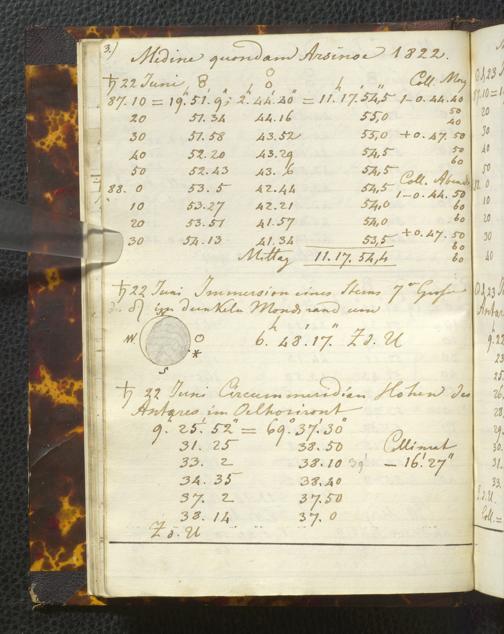 3.)
Medine quondam Arsinoe 1822.
♄ 22 Juni, 8 0 Coll. Morg
87.10 = 19.51.9; 2.44.40 = 11.17.54,5 1-0.44.40
20 51.34 44.16 55,0 50
40
30 51.58 43.52 55,0 +0.47.50
40 52.20 43.29 54,5 50
60
50 52.43 43.6 54,5 Coll. Abend
88. 0 53.5 42.44 54,5 1-0.44.50
10 53.27 42.21 54,0 60
20 53.51 41.57 54,0 60
30 54.13 41.34 53,5 +0.47.50
60
Mittag 11.17.54,4 60
♄ 22 Juni Immersion eines Sterns 7er Größe
im dunkeln Mondsrand um
W O 6.h 48'.17." Z d. U
*
S
♄ 22 Juni Circummeridian Höhen des
Antares im Oelhorizont
9.h 25'.52" = 69°.37'.30"
31. 25 38.50 Collimat
33. 2 38.10 39' - 16'.27"
34. 35 38.40
37. 2 37.50
38. 14 37. 0
Z d. U